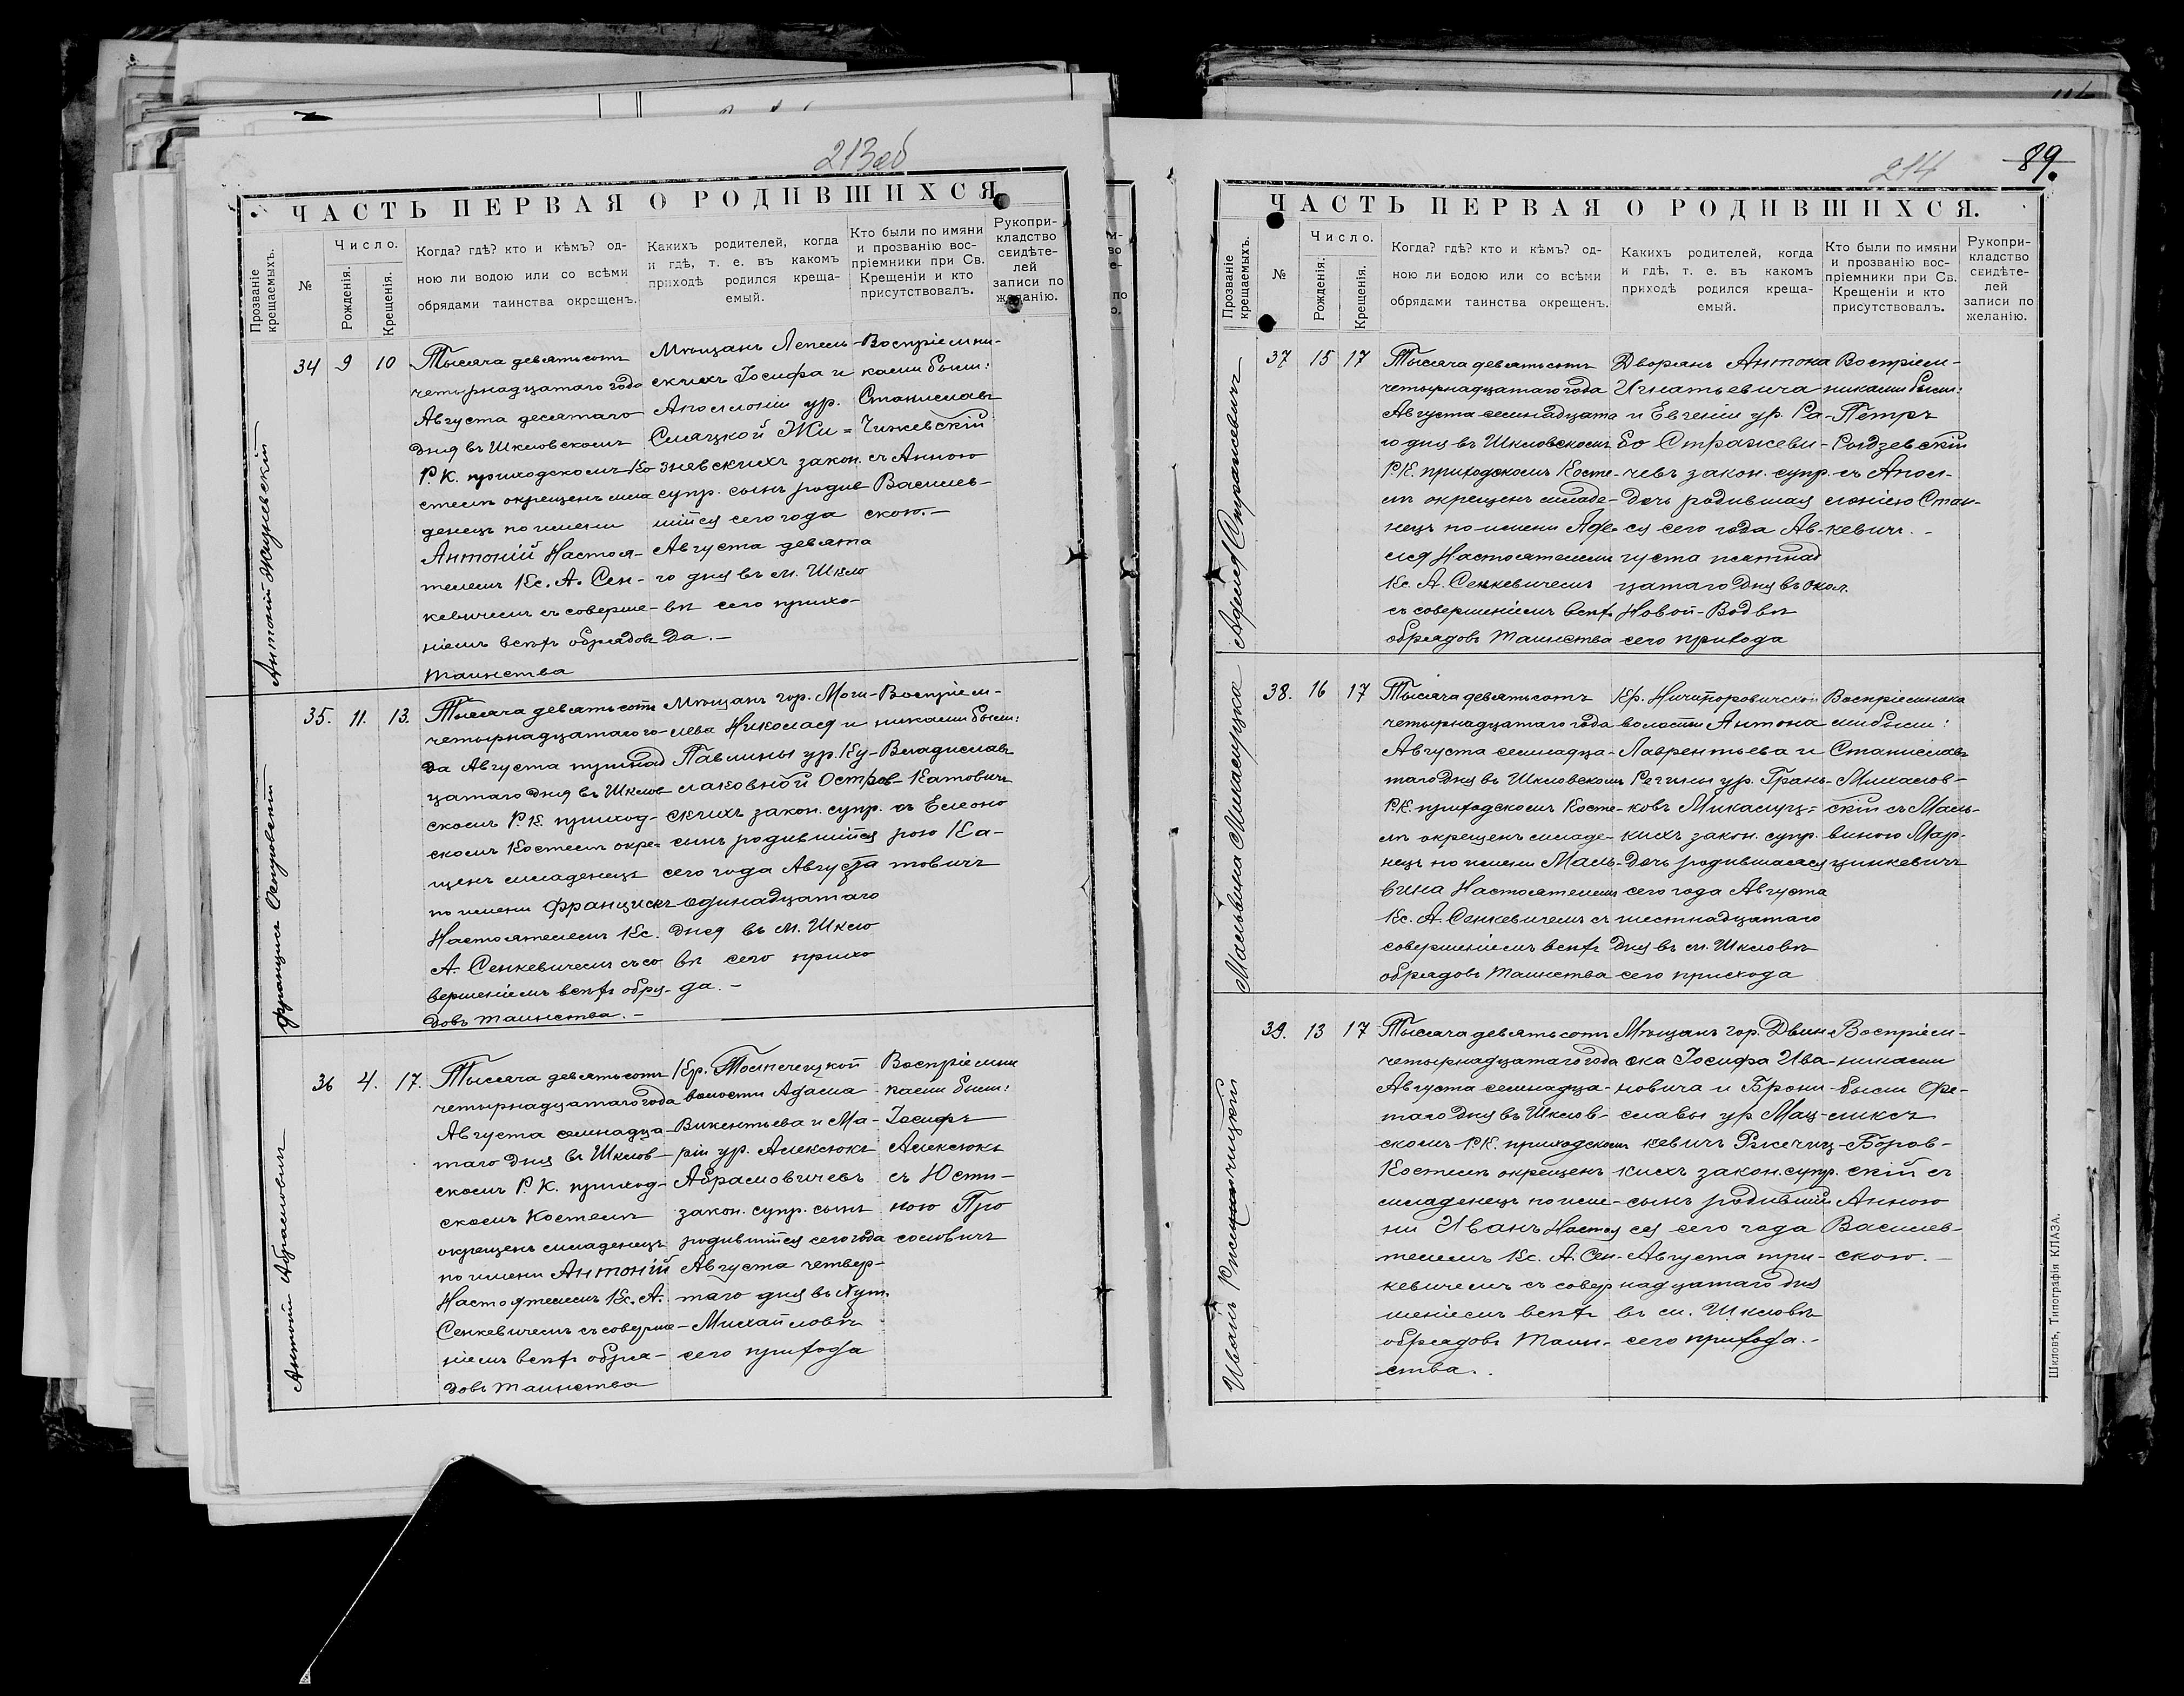 213об
ЧАСТЬ ПЕРВАЯ О РОДИВШИХСЯ
Прозваніе крещаемыхъ.
№
Число.
Рожденія.
Крещенія.
Когда? гдѣ? кто и кѣмъ? од-
ною ли водою или со всѣми
обрядами таинства окрещенъ.
Какихъ родителей, когда
и гдѣ, т. е. въ какомъ
приходѣ родился креща-
емый.
Кто были по имяни
и прозванію вос-
пріемники при Св.
Крещеніи и кто
присутствовалъ.
Рукопри-
кладство
свидѣте-
лей
записи по
желанію.
Антоній Жизневскій
34 9 10
Тысяча девятьсотъ
четырнадцатаго года
Августа десятаго
дня въ Шкловскомъ
Р. К. приходскомъ Ко
стелѣ окрещенъ мла
денецъ по имени
Антоній Настоя-
телемъ Кс. А. Сен-
кевичемъ съ соверше-
ніемъ всѣхъ обрядовъ
таинства
Мѣщанъ Лепель-
скихъ Іосифа и
Аполлоніи ур.
Смяцкой Жи=
зневскихъ закон.
супр. сынъ родив
шійся сего года
Августа девята
го дня въ м. Шкло
вѣ сего прихо-
да.-
Воспріемни-
ками были:
Станиславъ
Чижевскій
съ Анною
Василев-
скою.-
Францискъ Островскій
35. 11. 13.
Тысяча девятьсотъ
четырнадцатаго го-
да Августа тринад
цатаго дня въ Шклов
скомъ Р. К. приход-
скомъ Костелѣ окре-
щенъ младенецъ
по имени Францискъ
Настоятелемъ Кс.
А. Сенкевичемъ съ со
вершеніемъ всѣхъ обря-
довъ таинства.-
Мѣщанъ гор. Моги-
лева Николая и
Павлины ур. Ку-
лаковной Остров-
скихъ закон. супр.
сынъ родившійся
сего года Августа
одинадцатаго
дня въ м. Шкло
вѣ сего прихо
да.-
Воспріем-
никами были:
Владиславъ
Катовичъ
съ Елеоно
рою Ка-
товичъ
Антоній Абрамовичъ
36 4. 17.
Тысяча девятьсотъ
четырнадцатаго года
Августа семнадца-
таго дня въ Шклов-
скомъ Р. К. приход-
скомъ Костелѣ
окрещенъ младенецъ
по имени Антоній
Настоятелемъ Кс. А.
Сенкевичемъ съ соверше-
ніемъ всѣхъ обря-
довъ таинства
Кр.
волости Адама
Викентьева и Ма-
ріи ур. Алексюкъ
Абрамовичевъ
закон. супр. сынъ
родившійся сего года
Августа четвер-
таго дня въ хут.
Михайловѣ
сего прихода
Воспріемни
ками были:
Іосифъ
Алексюкъ
съ Юсти-
ною Про
соловичъ
214
89.
ЧАСТЬ ПЕРВАЯ О РОДИВШИХСЯ.
Прозваніе крещаемыхъ.
№
Число.
Рожденія.
Крещенія.
Когда? гдѣ? кто и кѣмъ? од-
ною ли водою или со всѣми
обрядами таинства окрещенъ.
Какихъ родителей, когда
и гдѣ, т. е. въ какомъ
приходѣ родился креща-
емый.
Кто были по имяни
и прозванію вос-
пріемники при Св.
Крещеніи и кто
присутствовалъ.
Рукопри-
кладство
свидѣте-
лей
записи по
желанію.
Аделя Стражевичъ
37 15 17
Тысяча девятьсотъ
четырнадцатаго года
Августа семнадцата
го дня въ Шкловскомъ
Р. К. приходскомъ Косте-
лѣ окрещенъ младе-
нецъ по имени Аде-
ля Настоятелемъ
Кс. А. Сенкевичемъ
съ совершеніемъ всѣхъ
обрядовъ таинства
Дворянъ Антона
Игнатьевича
и Евгеніи ур. Са-
бо Стражеви-
чевъ закон. супр.
дочь родившая
ся сего года Ав-
густа пятнад
цатаго дня въ окол.
Новой-Водвѣ
сего прихода
Воспріем-
никами были:
Петръ
Рыдзевскій
съ Апол-
лоніею Стан-
кевичъ.-
Мальвина Микалуцка
38. 16 17
Тысяча девятьсотъ
четырнадцатаго года
Августа семнадца-
таго дня въ Шкловскомъ
Р. К. приходскомъ Косте-
лѣ окрещенъ младе-
нецъ по имени Маль-
вина Настоятелемъ
Кс. А. Сенкевичемъ съ
совершеніемъ всѣхъ
обрядовъ таинства
Кр. Ничипоровичской
волости Антона
Лаврентьева и
Регины ур. Грань-
ковъ Микалуц=
кихъ закон. супр.
дочь родившаяся
сего года Августа
шестнадцатаго
дня въ м. Шкловѣ
сего прихода
Воспріемника
ми были:
Станиславъ
Михалов-
скій съ Маль-
виною Мар-
цинкевичъ
Иванъ Ржечицкій
39. 13 17
Тысяча девятьсотъ
четырнадцатаго года
Августа семнадца-
таго дня въ Шклов-
скомъ Р. К. приходскомъ
Костелѣ окрещенъ
младенецъ по име-
ни Иванъ Настоя
телемъ Кс. А. Сен-
кевичемъ съ совер
шеніемъ всѣхъ
обрядовъ таин-
ства.
Мѣщанъ гор. Двин
ска Іосифа Ива-
новича и Брони-
славы ур Мац-
кевичъ Ржечиц-
кихъ закон. супр.
сынъ родившій
ся сего года
Августа три-
надцатаго дня
въ м. Шкловѣ
сего прихода.-
Воспріем-
никами
были Фе-
ликсъ
Боров-
скій съ
Анною
Василев-
скою.-
Шкловъ, Типографія КЛАЗА.